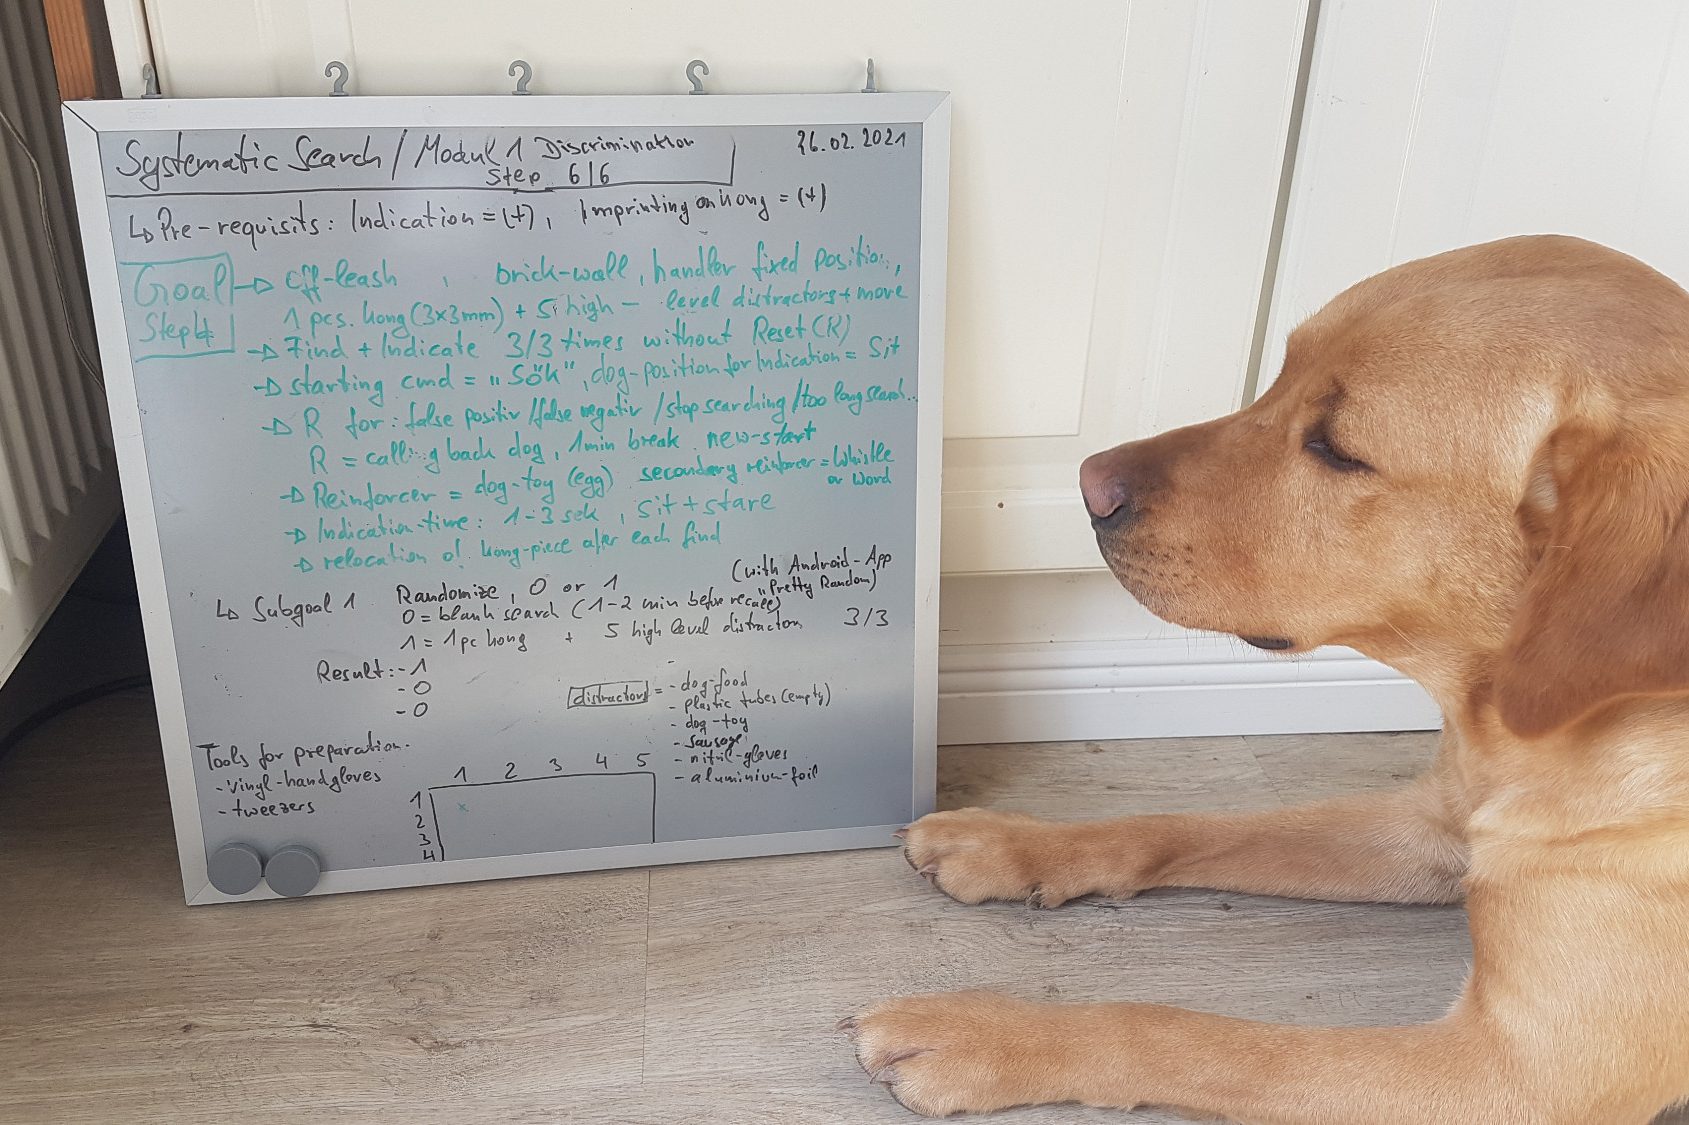 Systematic Search / Modul 1 Discrimination
Step 6/6
26.02.2021
↳ Pre-requisits: Indication = (+), Imprinting on kong = (+)
Goal
Step 4
→ off-leash, brick-wall, handler fixed position,
1 pcs. kong (3x3mm) + 5 high - level distractors + move
→ Find + Indicate 3/3 times without Reset (R)
→ starting cmd = "Sök", dog-position for Indication = Sit
→ R for: false positiv / false negativ / stop searching / too long search..
R = calling back dog, 1min break new-start
→ Reinforcer = dog-toy (egg) secondary reinforcer = Whistle
or Word
→ Indication-time: 1-3 sek, sit + stare
→ relocation of kong-piece after each find
↳ Subgoal 1 Randomize, 0 or 1 (with Android-App
"Pretty Random)
0 = blank search (1-2 min before recall)
1 = 1pc kong + 5 high level distractors 3/3
Result: - 1
- 0
- 0
distractors = - dog-food
- plastic tubes (empty)
- dog-toy
- sausage
- nitril-gloves
- aluminium-foil
Tools for preparation.
- vinyl-handgloves
- tweezers
1 2 3 4 5
1 x
2
3
4